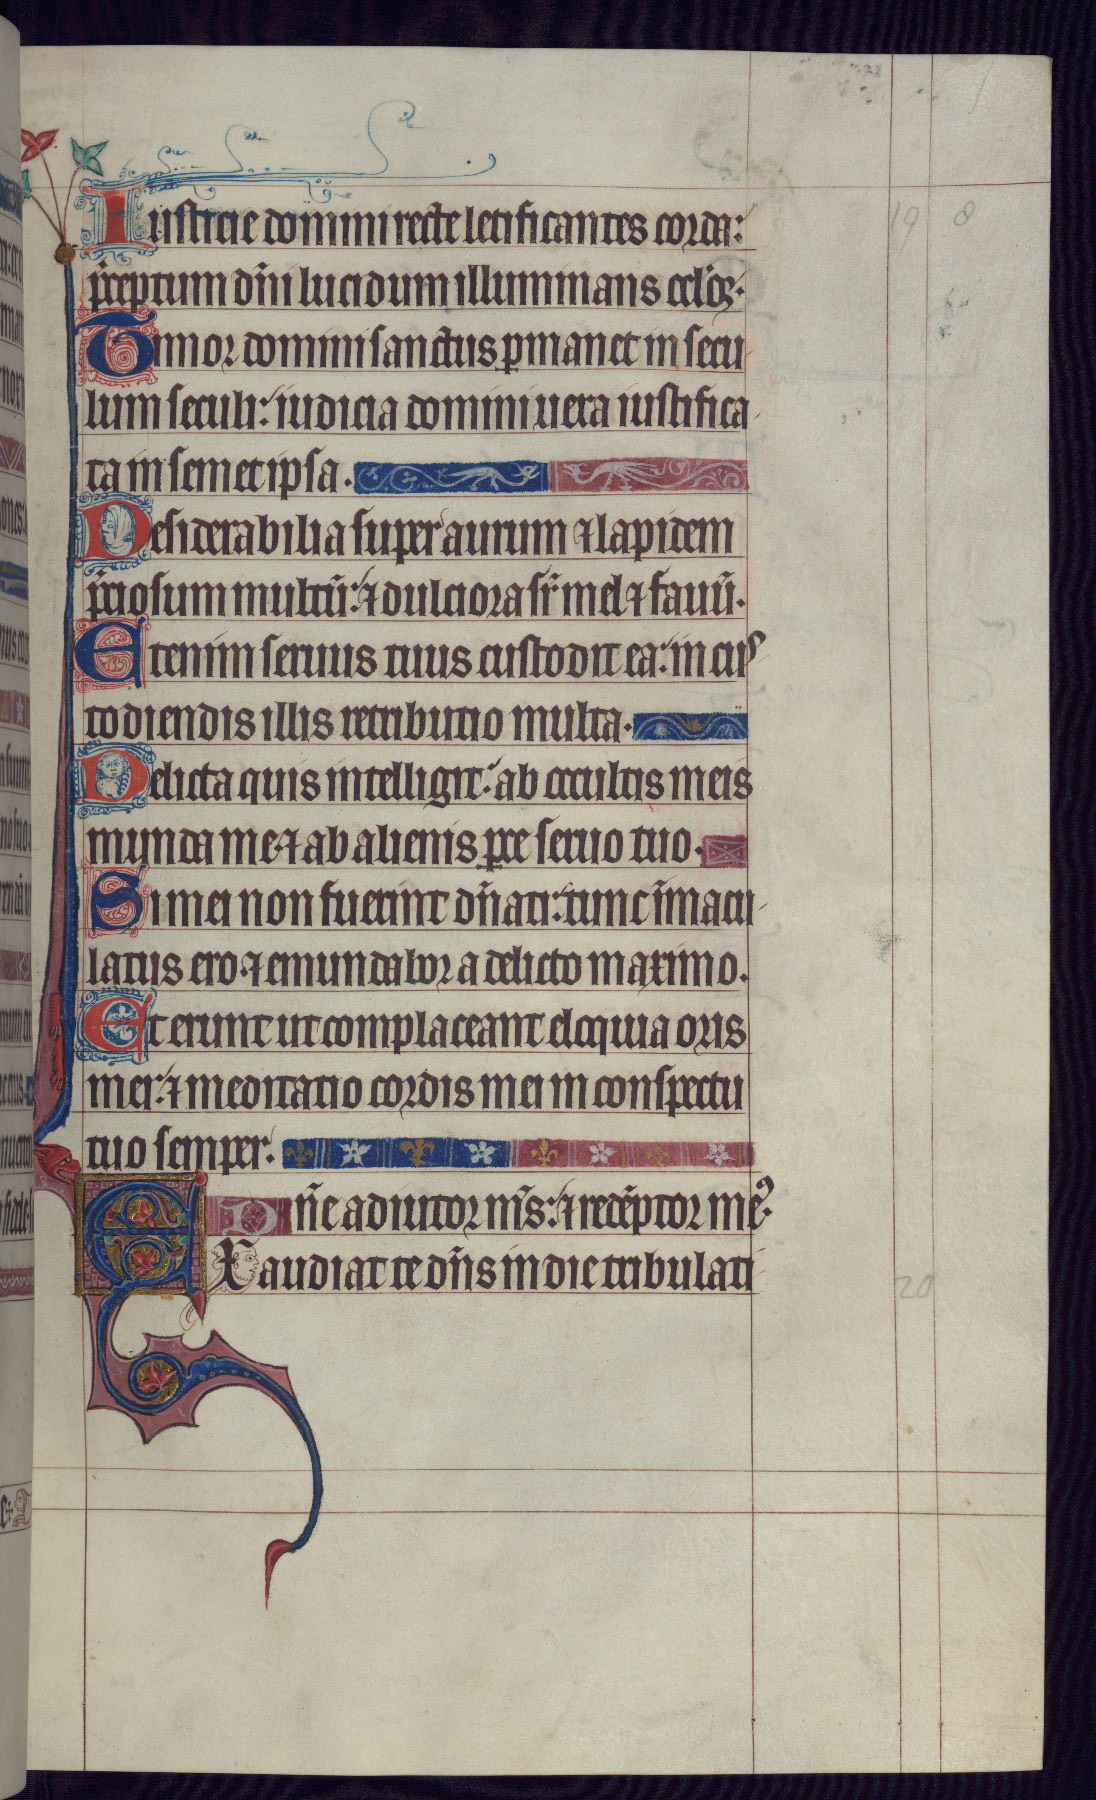 Iusticie domini recte letificantes corda:
p̄ceptum dn̄i lucidum illuminans oclōꝝ.
Timor domini sanctus ꝑmanet in secu
lum seculi: iudicia domini uera iustifica
ta in semet ipsa.
Desiderabilia super aurum ⁊ lapidem
p̄ciosum multū: ⁊ dulciora sr̄ mel ⁊ fauū.
Etenim seruus tuus custodit ea: in cusꝰ
todiendis illis retributio multa.
Delicta quis intelligit: ab occultis meis
munda me ⁊ ab alienis ꝑce seruo tuo.
Si mei non fuerint dn̄ati: tunc īmacu
latus ero ⁊ emundabor a delicto maximo.
Et erunt ut complaceant eloquia oris
mei: ⁊ meditatio cordis mei in conspectu
tuo semper.
Dn̄e adiutor ms̄: ⁊ redēptor meꝰ.
Exaudiat te dn̄s in die tribulati
19 8
20